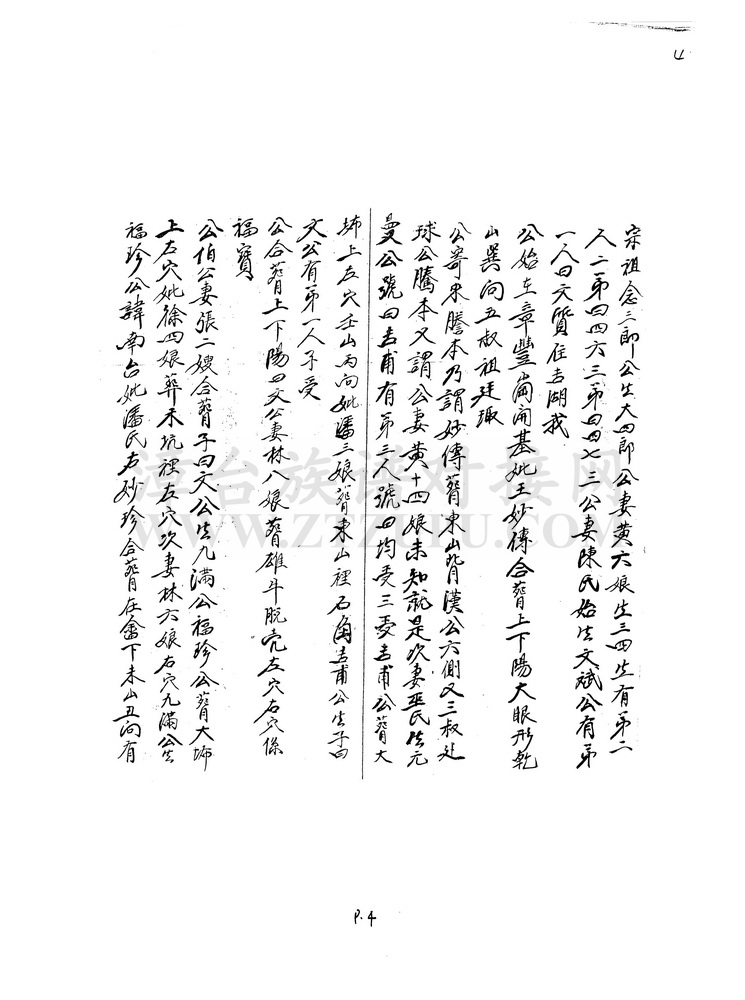 4
宋祖念三郎公生大四郎公妻黄六娘生三四生有第二
人二第曰四六三第曰四七三公妻陳氏始生文斌公有弟
一人曰文質住吉湖我
公始在章豐崗開基妣王妙傳合葬上下陽大眼形乾
山巽向五叔祖廷璣
公寄來謄本乃謂妙傳葬東山背漢公六側又三叔廷
球公騰本又謂公妻黄十四娘未知就是次妻巫氏生元
曼公號曰吉甫有第三人號曰均受三受吉甫公葬大
㘵上左穴壬山丙向妣潘三娘葬東山裡石角吉甫公生子曰
文公有第一人子受
公合葬上下陽曰文公妻林八娘葬雄斗脫壳左穴右穴係
福寶
公伯公妻張二嫂合葬子曰文公生九滿公福珍公葬大㘵
上左穴妣徐四娘葬禾坑裡左穴次妻林六娘右穴九滿公生
福珍公諱南台妣潘氏右妙珍合葬在畬下未山丑向有
潭台族谱对接网
WWW.ZTZUPU.COM
P.4